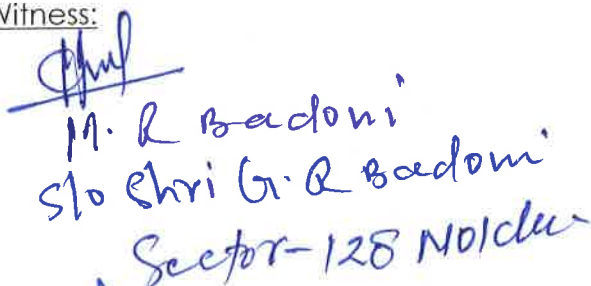 Witness:
M. R Badoni
S/o Shri G. R Badoni
Sector-128 Noida